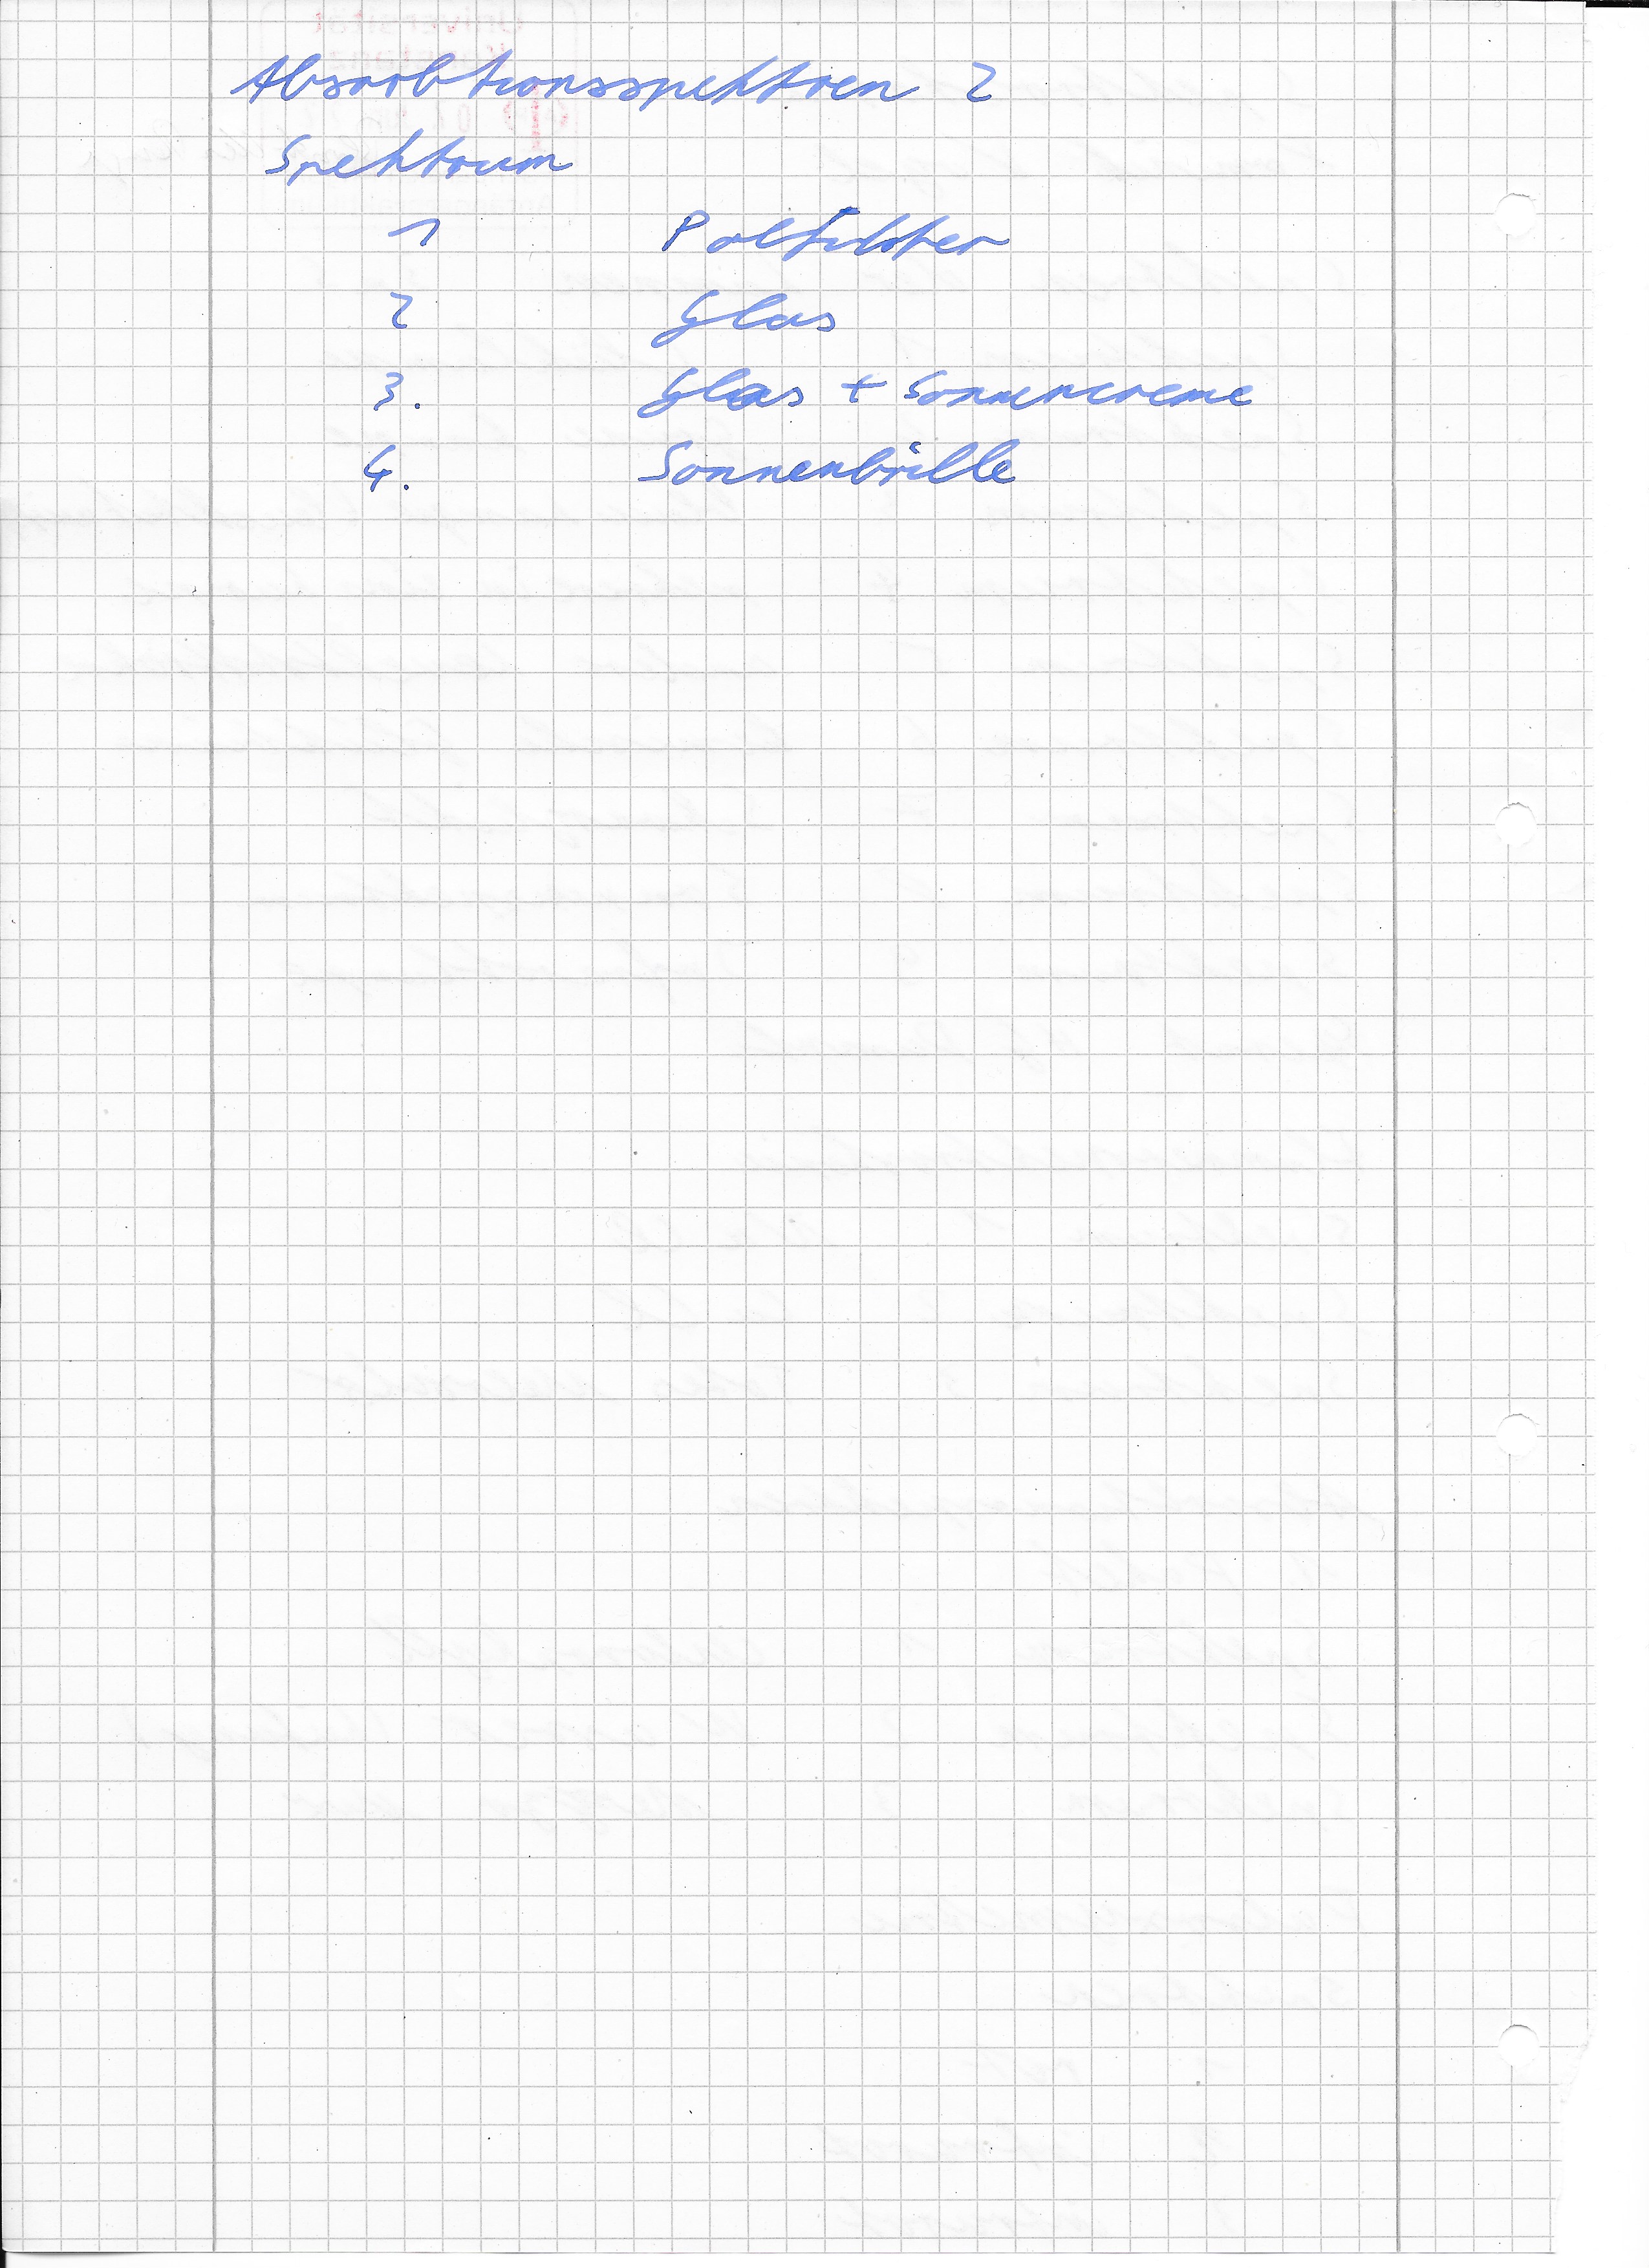 Absorbtionsspektren 2
Spektrum
1 Polfilter
2 Glas
3. Glas + Sonnencreme
4. Sonnenbrille